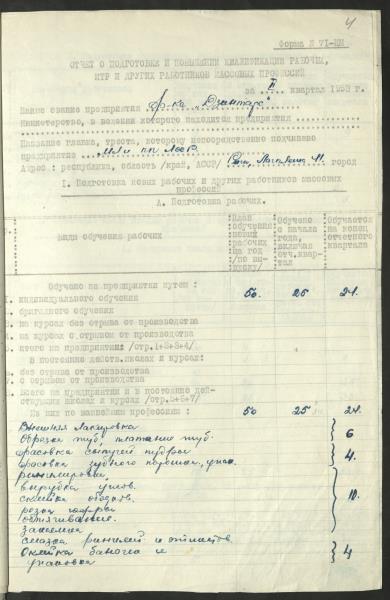 4
Форма № VI-ПМ
ОТЧЕТ О ПОДГОТОВКЕ И ПОВЫШЕНИИ КВАЛИФИКАЦИИ РАБОЧИХ,
ИТР И ДРУГИХ РАБОТНИКОВ МАССОВЫХ ПРОФЕССИЙ
за II квартал 1953 г.
Наименование предприятия ф-ка „Дзинтарс"
Министерство, в ведении которого находится предприятие
Название главка, треста, которому непосредственно подчинено
предприятие
Адрес: республика, область /край, АССР/ 11. город
I. Подготовка новых рабочих и других работников массовых
профессий
А. Подготовка рабочих.
Виды обучения рабочих
План обучения новых рабочих на год /по выпуску/
Обучено с начала года, включая отч. квартал
Обучается на конец отчетного квартала
Обучено на предприятии путем:
индивидуального обучения 50. 25 24.
бригадного обучения
на курсах без отрыва от производства
на курсах с отрывом от производства
итого на предприятии: /стр.1+2+3+4/
В постоянно действ. школах и курсах:
без отрыва от производства
с отрывом от производства
Всего на предприятии и в постоянно дей-
ствующих школах и курсах /стр.5+6+7/
Из них по важнейшим профессиям: 50 25 24.
Внешняя Лакировка
Обрезка туб, тиснение туб. 6
фасовка сыпучей пудры 4.
фасовка зубного порошка, упак.
вырубка
склейка ободков. 10.
обтягивание.
смазка
Оклейка баночек и 4
упаковка